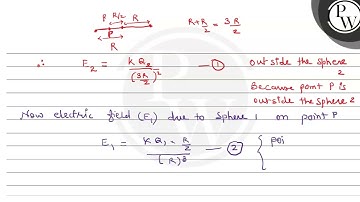 P R/2 R
P
R
R+R/2 = 3R/2
∴ E2 = KQ2/(3R/2)² — ① outside the sphere 2
Because point P is
outside the sphere 2
Now electric field (E1) due to sphere 1 on point P
E1 = KQ1 · R/2 / (R)³ — ② { poi